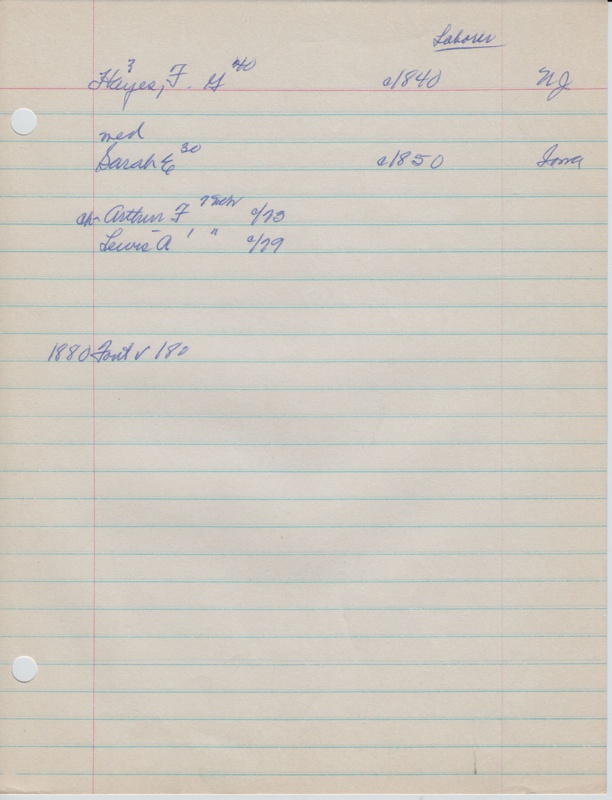 Laborer
Hayes, F. G 40 c1840 NJ
med
Sarah E 30 c1850 Iowa
ch- Arthur F 7 Nebr c/73
Lewis A 1 " c/79
1880 Font v 180